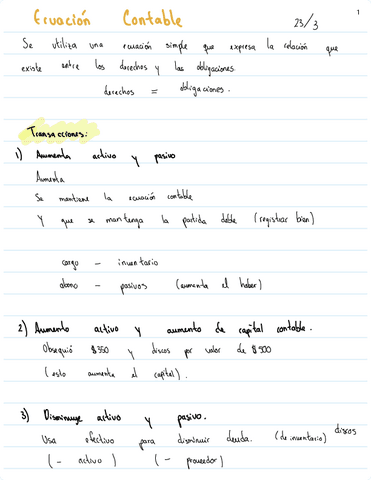 1
Ecuación Contable 23/3
Se utiliza una ecuación simple que expresa la relación que
existe entre los derechos y las obligaciones.
derechos = obligaciones.
Transacciones:
1) Aumenta activo y pasivo
Aumenta
Se mantiene la ecuación contable
Y que se mantenga la partida doble (registrar bien)
cargo - inventario
abono - pasivos (aumenta el haber)
2) Aumento activo y aumento de capital contable.
Obsequió $350 y discos por valor de $900
(esto aumenta el capital).
3) Disminuye activo y pasivo.
Usa efectivo para disminuir deuda. (de inventario) discos
(- activo) (- proveedor)